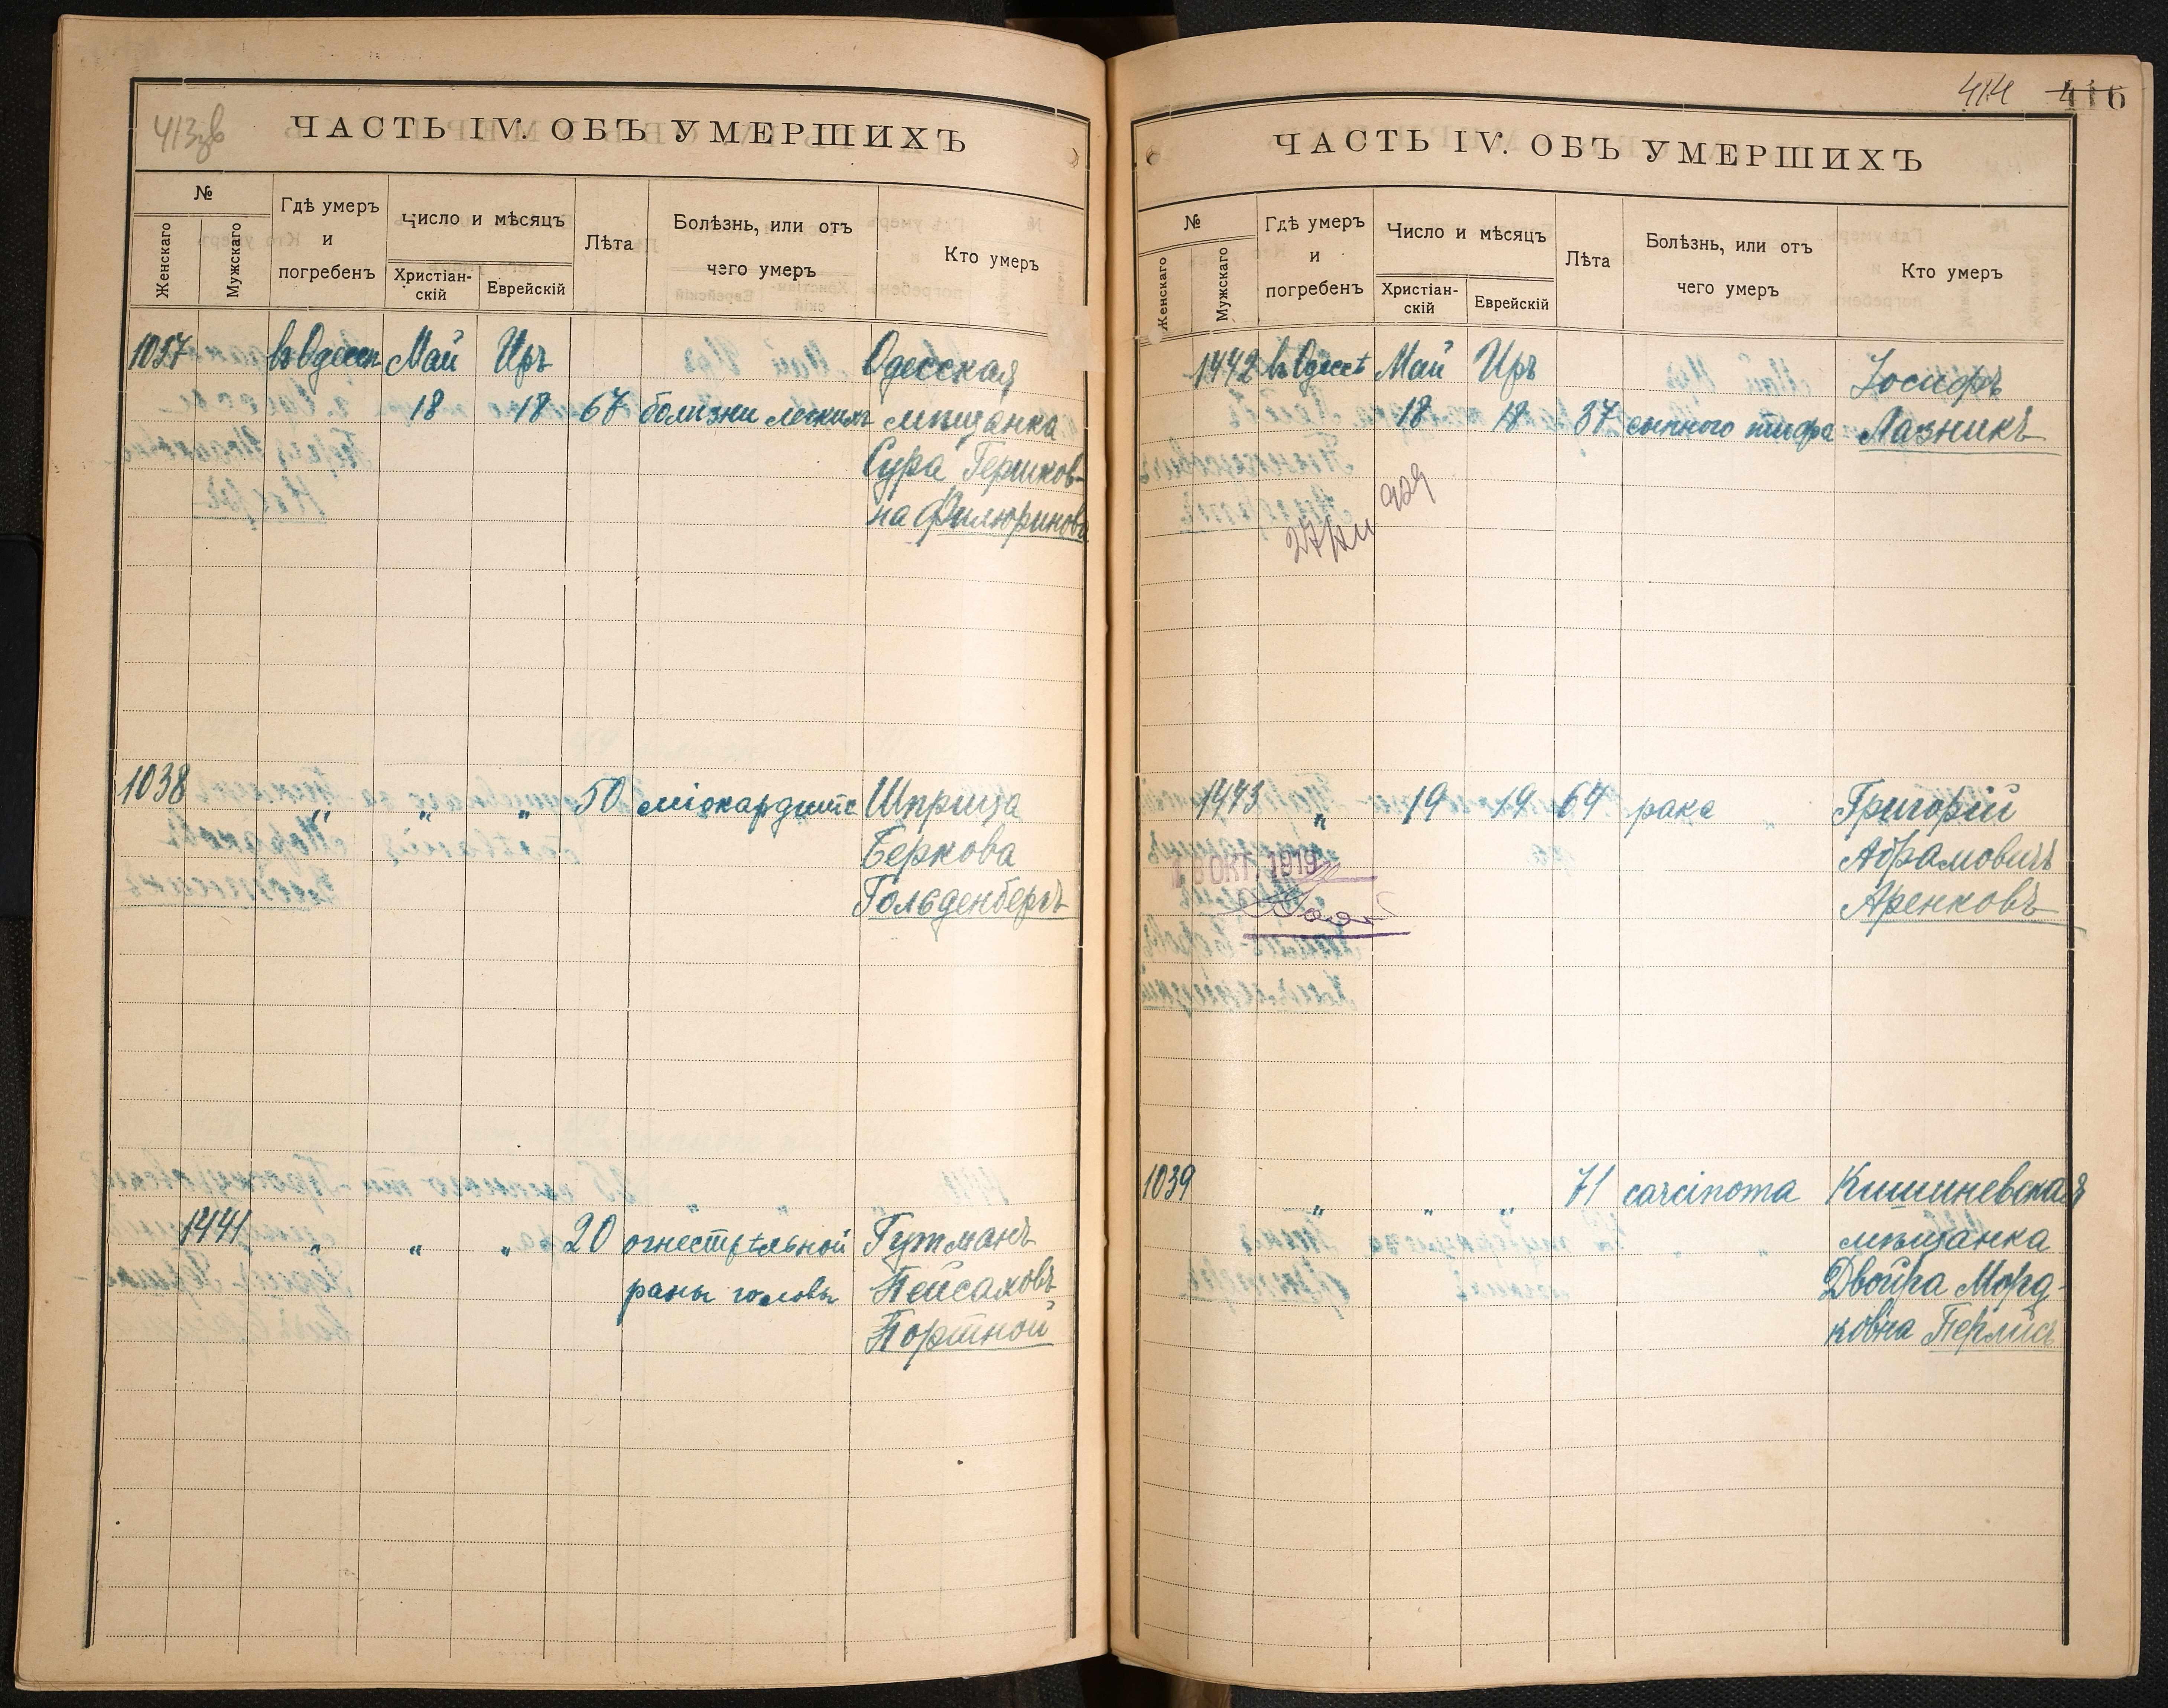 413 зв
ЧАСТЬ IV. ОБЪ УМЕРШИХЪ
№
Женскаго
Мужскаго
Гдѣ умеръ
и
погребенъ
Число и мѣсяцъ
Христіан-
скій
Еврейскій
Лѣта
Болѣзнь, или отъ
чего умеръ
Кто умеръ
1037 въ Одессѣ Май Иръ Одесская
18 18 67 болѣзни легкихъ мѣщанка
Сура Гершков-
на Филюринова
1038 „ „ „ 50 міокардита Шприца
Беркова
Гольденбергъ
1441 „ „ „ 20 огнестрѣльной Гутманъ
раны головы Пейсаховъ
Портной
414 416
ЧАСТЬ IV. ОБЪ УМЕРШИХЪ
№
Женскаго
Мужскаго
Гдѣ умеръ
и
погребенъ
Число и мѣсяцъ
Христіан-
скій
Еврейскій
Лѣта
Болѣзнь, или отъ
чего умеръ
Кто умеръ
1442 въ Одессѣ Май Иръ Іосифъ
18 18 37 сыпного тифа Лазникъ
1443 „ 19 19 64 рака Григорій
Абрамовичъ
ОКТ. 1919
Аренковъ
1039 „ „ „ 71 carcinoma Кишиневская
мѣщанка
Двойра Морд-
ковна Перлисъ